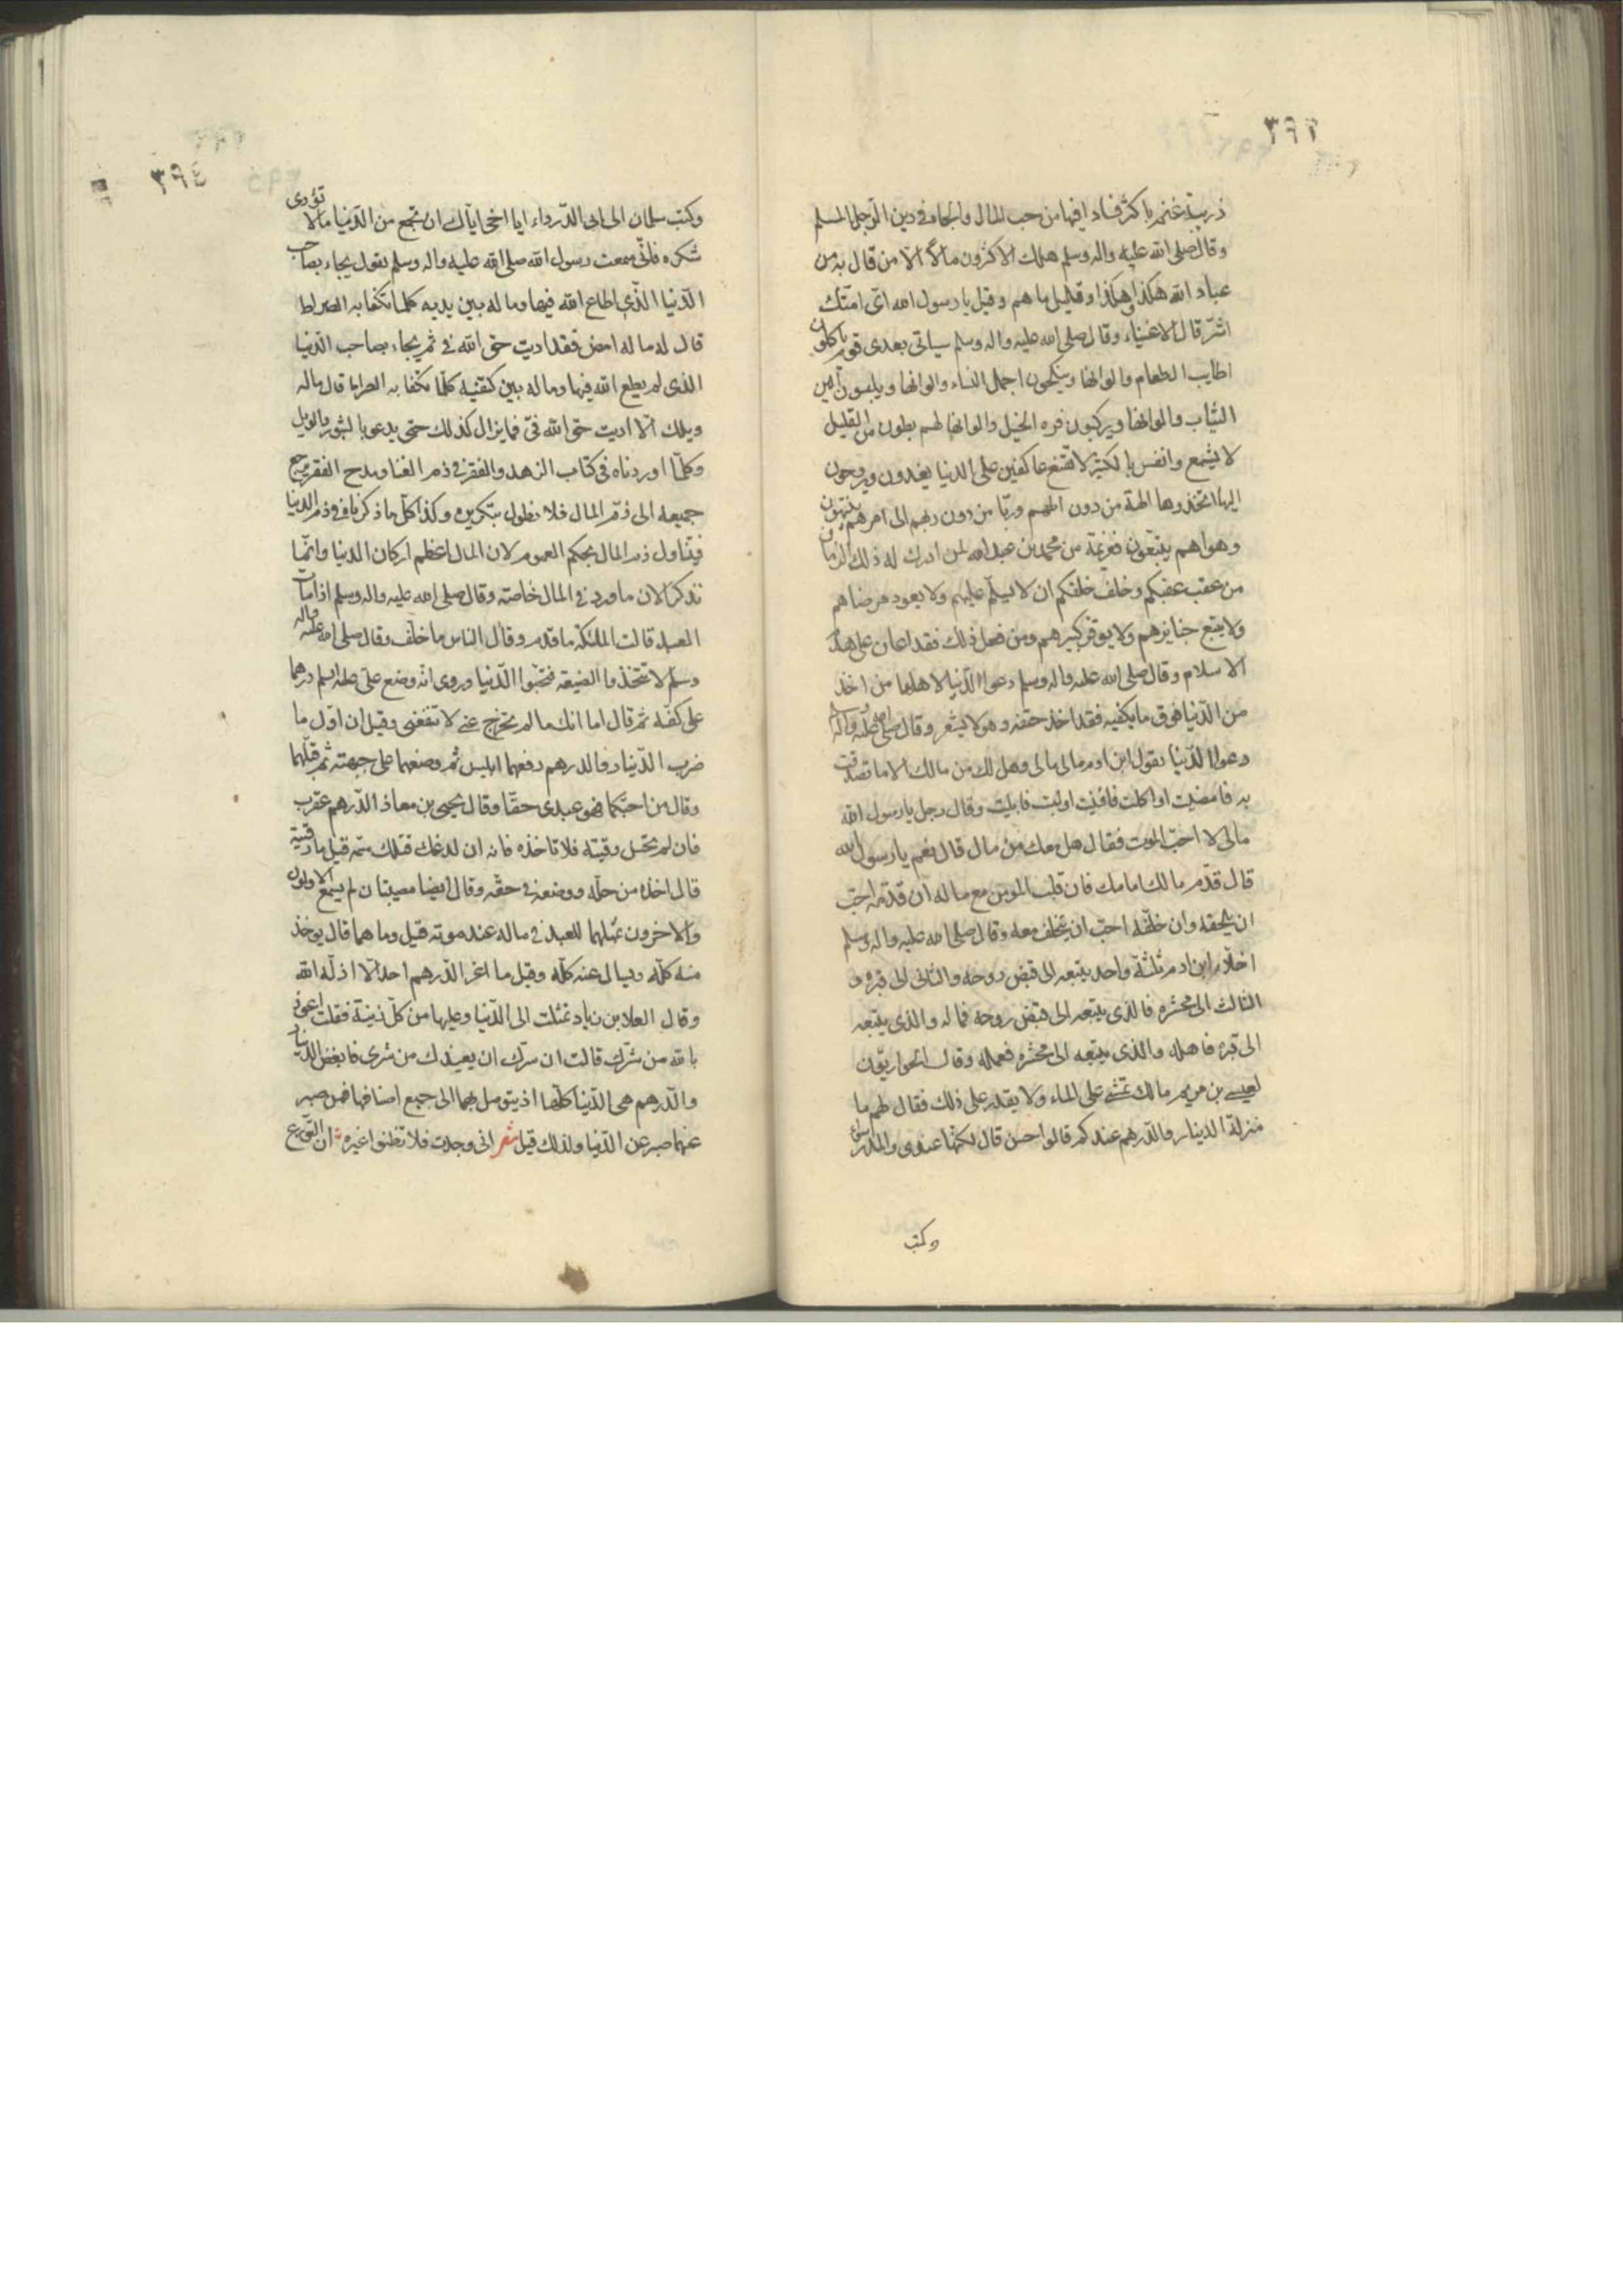 ٣٩٣
ذريبة غنم باكثر فسادا فيها من حب المال والجاه في دين الرجل المسلم
وقال صلى الله عليه واله وسلم هلك الاكثرون مالا الا من قال به من
عباد الله هكذا وهكذا وقليل ما هم وقيل يا رسول الله اى امتك
اشر قال الاغنياء وقال صلى الله عليه واله وسلم سياتى بعدى قوم ياكلون
اطايب الطعام والوانها وينكحون اجمل النساء والوانها ويلبسون الين
الثياب والوانها ويركبون فره الخيل والوانها لهم بطون من القليل
لا يشبع وانفس بالكثير لا تقنع عاكفين على الدنيا يغدون ويروحون
اليها اتخذوها الهة من دون الههم وربا من دون ربهم الى امرهم ينتهون
وهواهم يتبعون فعزيمة من محمد بن عبد الله لمن ادرك له ذلك الزمان
من عقب عقبكم وخلف خلفكم ان لا يسلم عليهم ولا يعود مرضاهم
ولا يتبع جنايزهم ولا يوقر كبيرهم ومن فعل ذلك فقد اعان على هدم
الاسلام وقال صلى الله عليه واله وسلم دعوا الدنيا لاهلها من اخذ
من الدنيا فوق ما يكفيه فقد اخذ حتفه وهو لا يشعر وقال صلى الله عليه واله
دعوا الدنيا يقول ابن ادم مالى مالى وهل لك من مالك الا ما تصدقت
به فامضيت او اكلت فافنيت او لبست فابليت وقال رجل يا رسول الله
مالى لا احب الموت فقال هل معك من مال قال نعم يا رسول الله
قال قدم مالك امامك فان قلب المومن مع ماله ان قدمه احب
ان يلحقه وان خلفه احب ان يتخلف معه وقال صلى الله عليه واله وسلم
اخلاء ابن ادم ثلثة واحد يتبعه الى قبض روحه والثانى الى قبره و
الثالث الى محشره فالذى يتبعه الى قبض روحه فماله والذى يتبعه
الى قبره فاهله والذى يتبعه الى محشره فعمله وقال الحواريون
لعيسى بن مريم مالك تمشى على الماء ولا يقدر على ذلك فقال لهم ما
منزلة الدينار والدرهم عندكم قالوا حسن قال لكنها عندى والمدر سواء
وكتب
٣٩٤
وكتب سلمان الى ابى الدرداء ايا اخى اياك ان تجمع من الدنيا مالا تؤدى
شكره فانى سمعت رسول الله صلى الله عليه واله وسلم يقول يجاء بصاحب
الدنيا الذى اطاع الله فيها وماله بين يديه كلما تكفا به الصراط
قال له ماله امض فقد اديت حق الله فى ثم يجاء بصاحب الدنيا
الذى لم يطع الله فيها وماله بين كتفيه كلما تكفا به الصراط قال ماله
ويلك الا اديت حق الله فى فما يزال كذلك حتى يدعو بالثبور والويل
وكلما اوردناه فى كتاب الزهد والفقر فى ذم الغنا ومدح الفقر يرجع
جميعه الى ذم المال فلا نطول بتكريره وكذا كل ما ذكرناه فى ذم الدنيا
فيتناول ذم المال بحكم العموم لان المال اعظم اركان الدنيا وانما
نذكر الان ما ورد فى المال خاصة وقال صلى الله عليه واله وسلم اذا مات
العبد قالت الملئكة ما قدم وقال الناس ما خلف وقال صلى الله عليه واله
وسلم لا تتخذوا الضيعة فتحبوا الدنيا وروى انه وضع على عليه السلم درهما
على كفه ثم قال اما انك ما لم تخرج عنى لا تنفعنى وقيل ان اول ما
ضرب الدينار والدرهم رفعهما ابليس ثم وضعهما على جبهته ثم قبلهما
وقال من احبكما فهو عبدى حقا وقال يحيى بن معاذ الدرهم عقرب
فان لم تحسن رقيته فلا تاخذه فانه ان لدغك قتلك سمه قيل ما رقيته
قال اخذه من حله ووضعه فى حقه وقال ايضا مصيبتان لم يسمع الاولون
والاخرون بمثلهما للعبد فى ماله عند موته قيل وما هما قال يوخذ
منه كله ويسال عنه كله وقيل ما اعز الدرهم احد الا اذله الله
وقال العلا بن زياد تمثلت الى الدنيا وعليها من كل زينة فقلت اعوذ
بالله من شرك قالت ان سرك ان يعيذك من شرى فابغض الدينار
والدرهم هى الدنيا كلها اذ يتوصل بهما الى جميع اصنافها فمن صبر
عنهما صبر عن الدنيا ولذلك قيل شعر انى وجدت فلا تظنوا غيره ان التورع